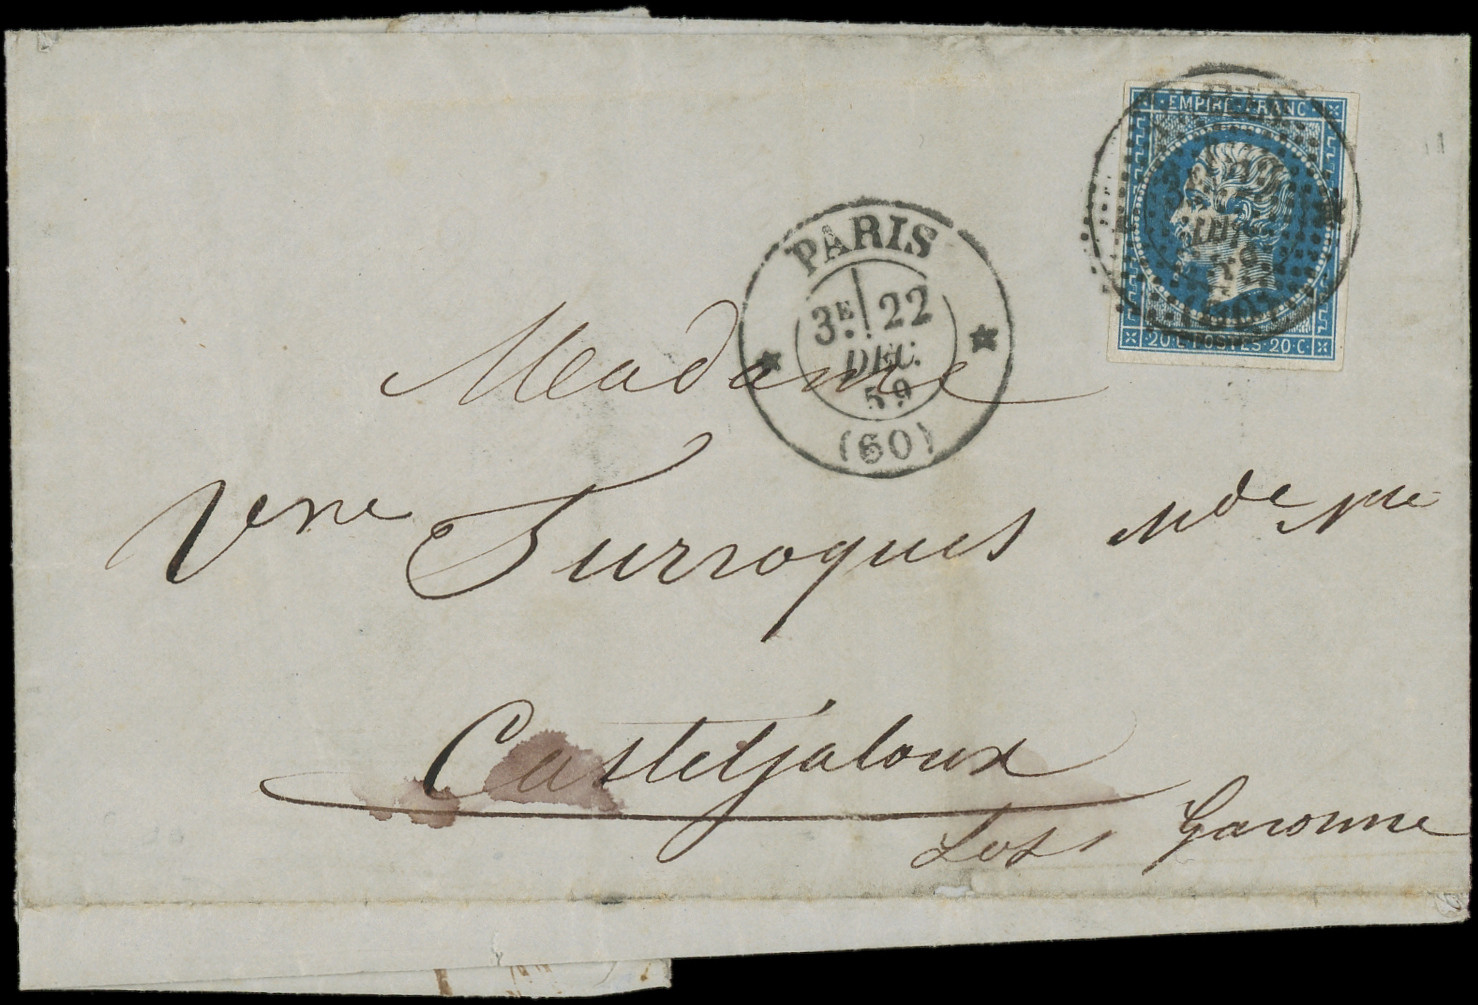 EMPIRE FRANC
20 C. POSTES 20 C.
PARIS
3E 22
DEC.
59
(60)
Madame
Vve Surroques Mde
Casteljaloux
Lot Garonne